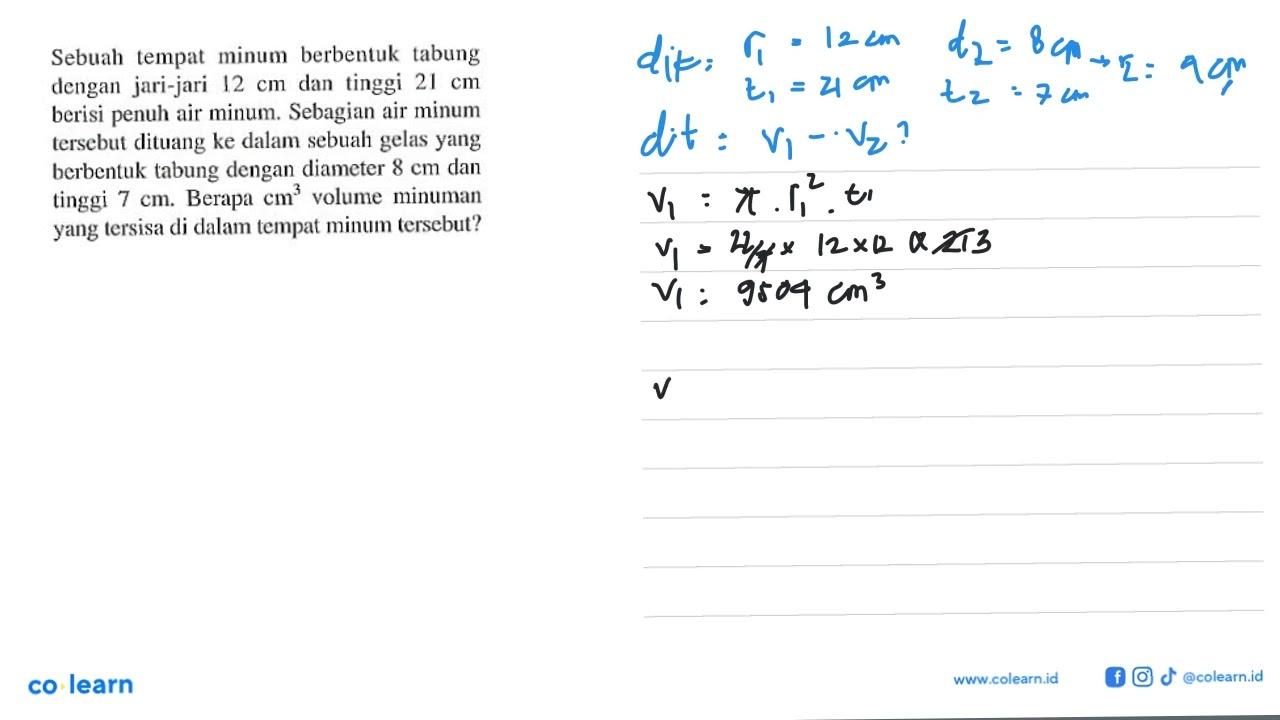 Sebuah tempat minum berbentuk tabung
dengan jari-jari 12 cm dan tinggi 21 cm
berisi penuh air minum. Sebagian air minum
tersebut dituang ke dalam sebuah gelas yang
berbentuk tabung dengan diameter 8 cm dan
tinggi 7 cm. Berapa cm³ volume minuman
yang tersisa di dalam tempat minum tersebut?
dik: r₁ = 12 cm d₂ = 8 cm → r₂ = 4 cm
t₁ = 21 cm t₂ = 7 cm
dit = V₁ - V₂?
V₁ = π . r₁² . t₁
V₁ = 22/7 × 12 × 12 × 21 3
V₁ = 9504 cm³
V
co learn
www.colearn.id
@colearn.id